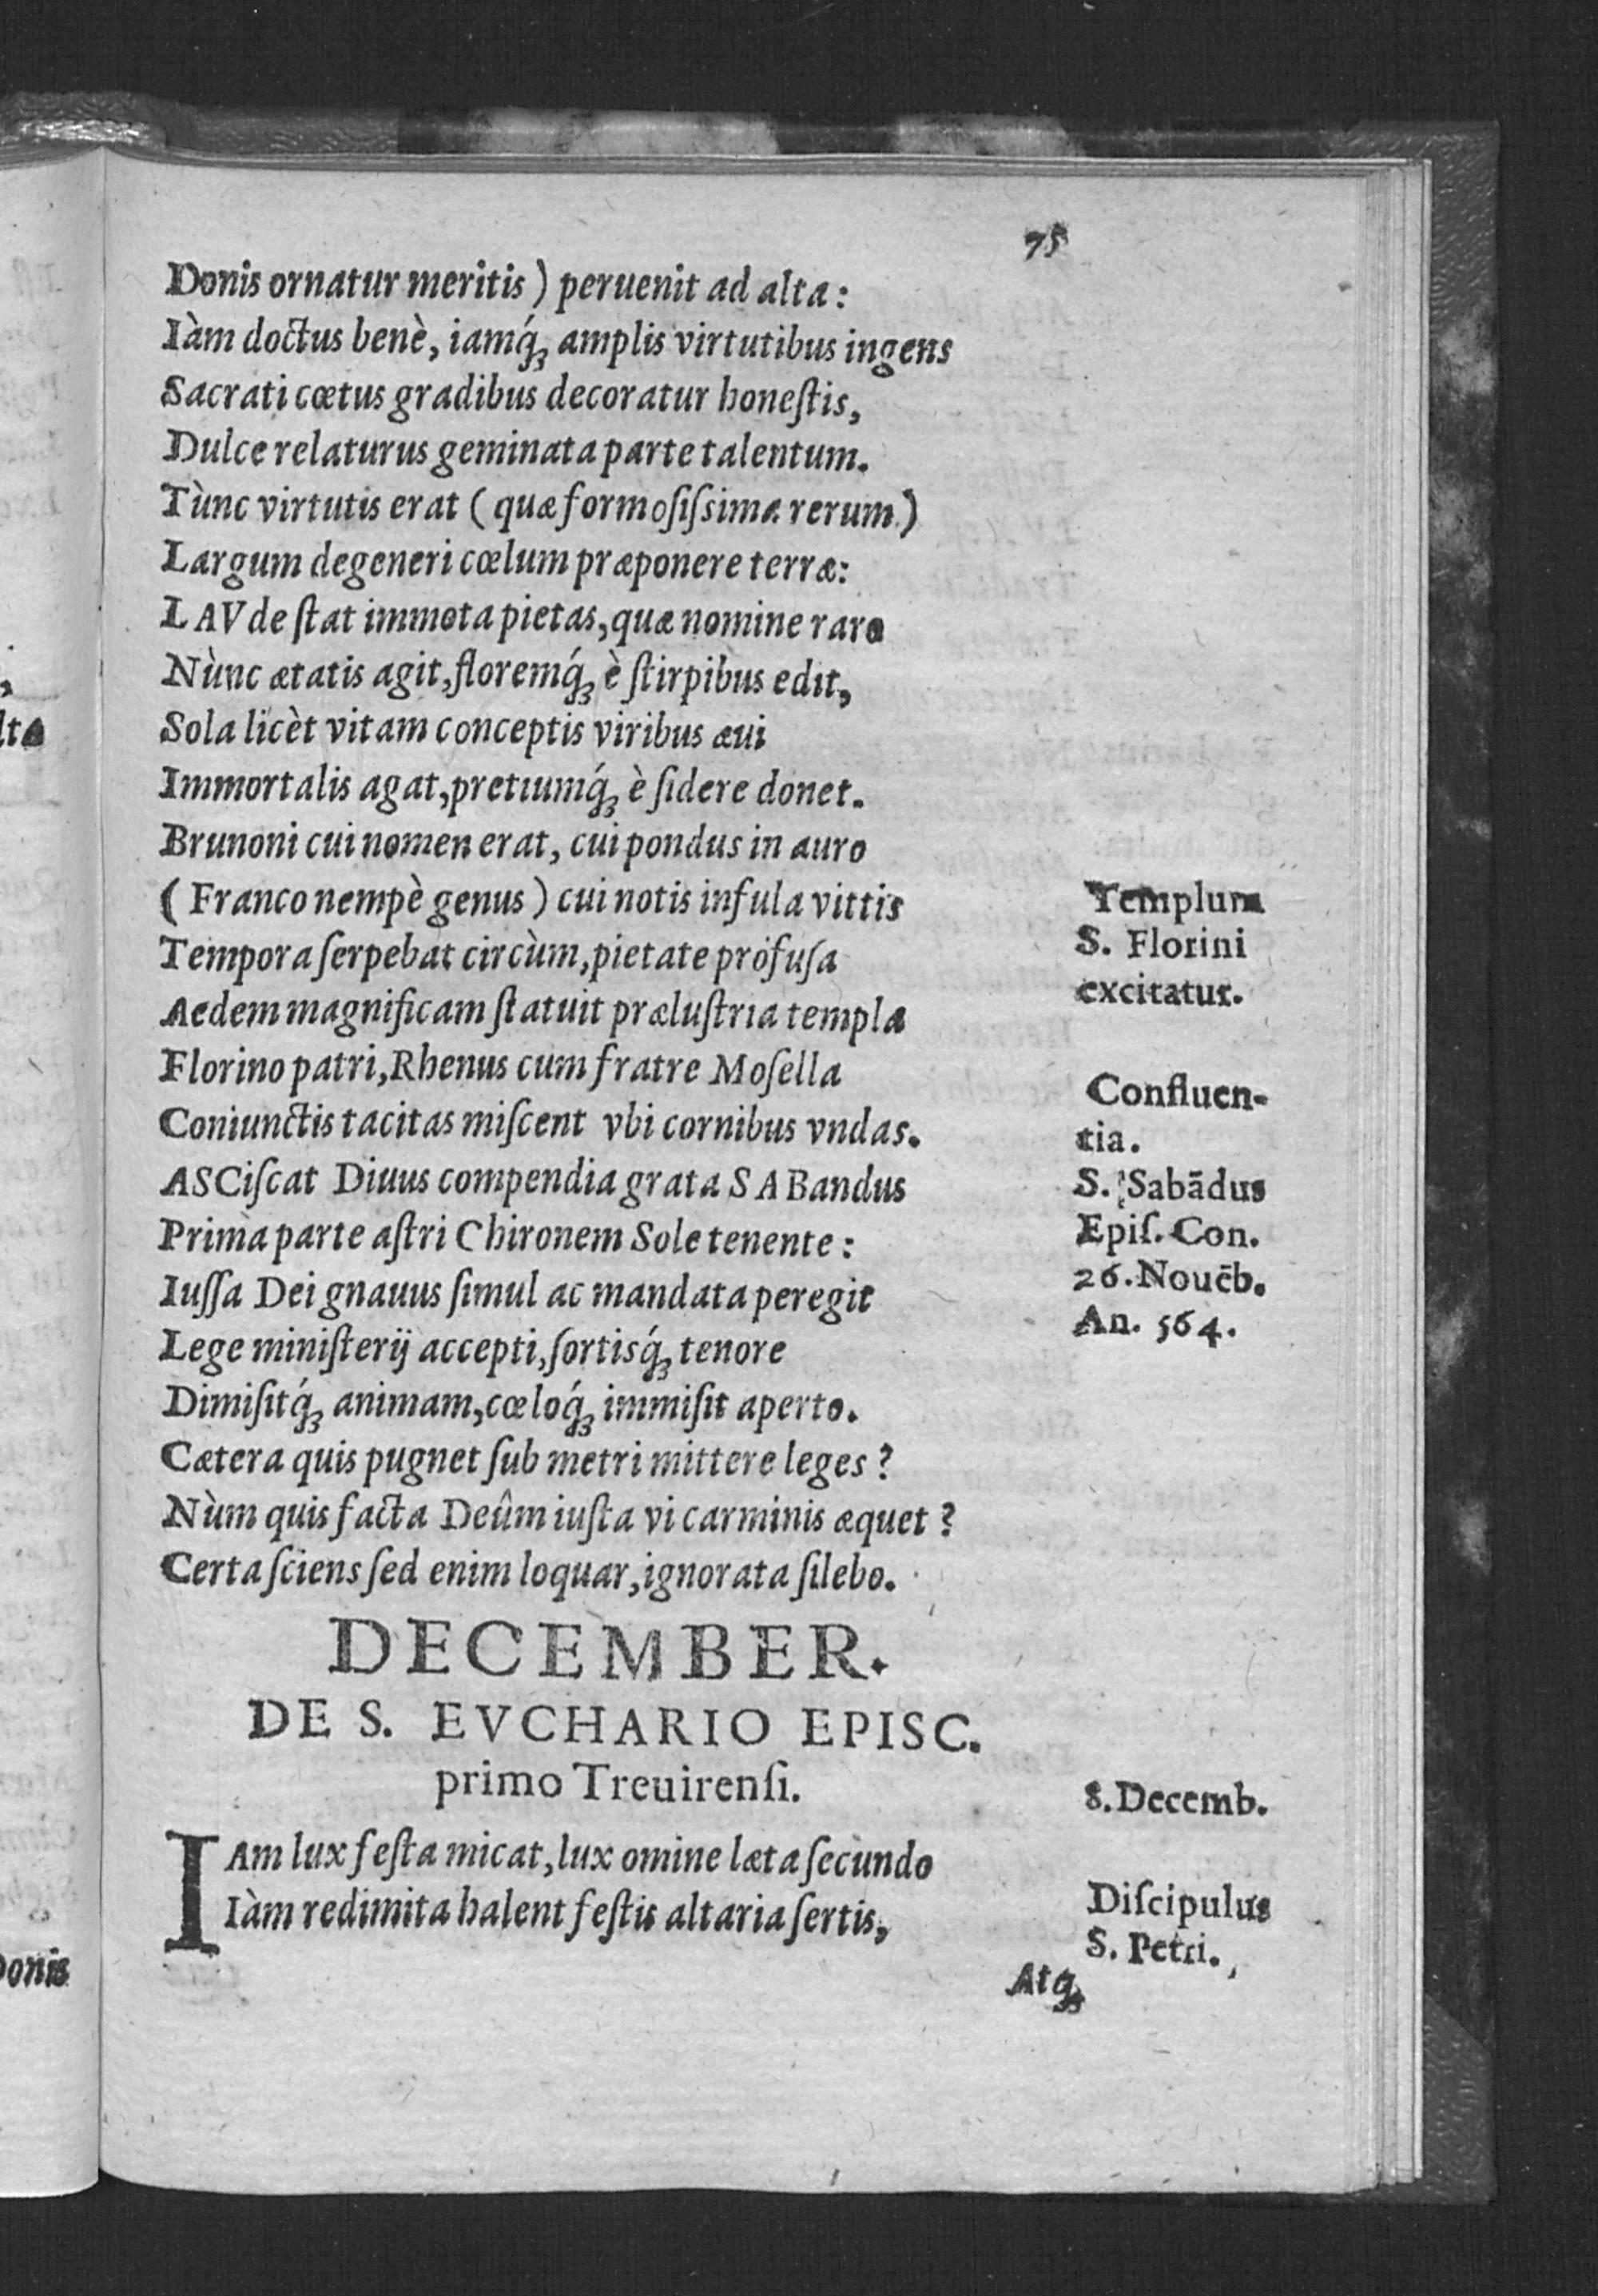 75
Donis ornatur meritis) peruenit ad alta:
Iàm doctus benè, iamq́ꝫ amplis virtutibus ingens
Sacrati cœtus gradibus decoratur honeſtis,
Dulce relaturus geminata parte talentum.
Tùnc virtutis erat (quæ formoſiſsima rerum)
Largum degeneri cœlum præponere terræ:
LAVde ſtat immota pietas, quæ nomine raro
Nùnc ætatis agit, floremq́ꝫ è ſtirpibus edit,
Sola licèt vitam conceptis viribus æui
Immortalis agat, pretiumq́ꝫ è ſidere donet.
Brunoni cui nomen erat, cui pondus in auro
(Franco nempè genus) cui notis infula vittis
Tempora ſerpebat circùm, pietate profuſa
Aedem magnificam ſtatuit præluſtria templa
Florino patri, Rhenus cum fratre Moſella
Coniunctis tacitas miſcent vbi cornibus vndas.
ASCiſcat Diuus compendia grata SABandus
Prima parte aſtri Chironem Sole tenente:
Iuſſa Dei gnauus ſimul ac mandata peregit
Lege miniſterij accepti, ſortisq́ꝫ tenore
Dimiſitq́ꝫ animam, cœloq́ꝫ immiſit aperto.
Cætera quis pugnet ſub metri mittere leges?
Nùm quis facta Deûm iuſta vi carminis æquet?
Certa ſciens ſed enim loquar, ignorata ſilebo.
Templum
S. Florini
excitatur.
Confluen-
tia.
S. Sabādus
Epiſ. Con.
26. Nouēb.
An. 564.
DECEMBER.
DE S. EVCHARIO EPISC.
primo Treuirenſi.
8. Decemb.
IAm lux feſta micat, lux omine læta ſecundo
Iàm redimita halent feſtis altaria ſertis,
Diſcipulus
S. Petri.
Atqꝫ
lta
Donis